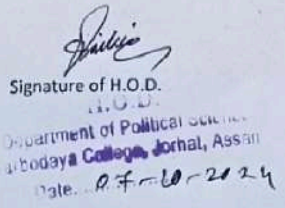 Signature of H.O.D.
H.O.D.
Department of Political
College, Jorhal, Assam
Date. 07-10-2024